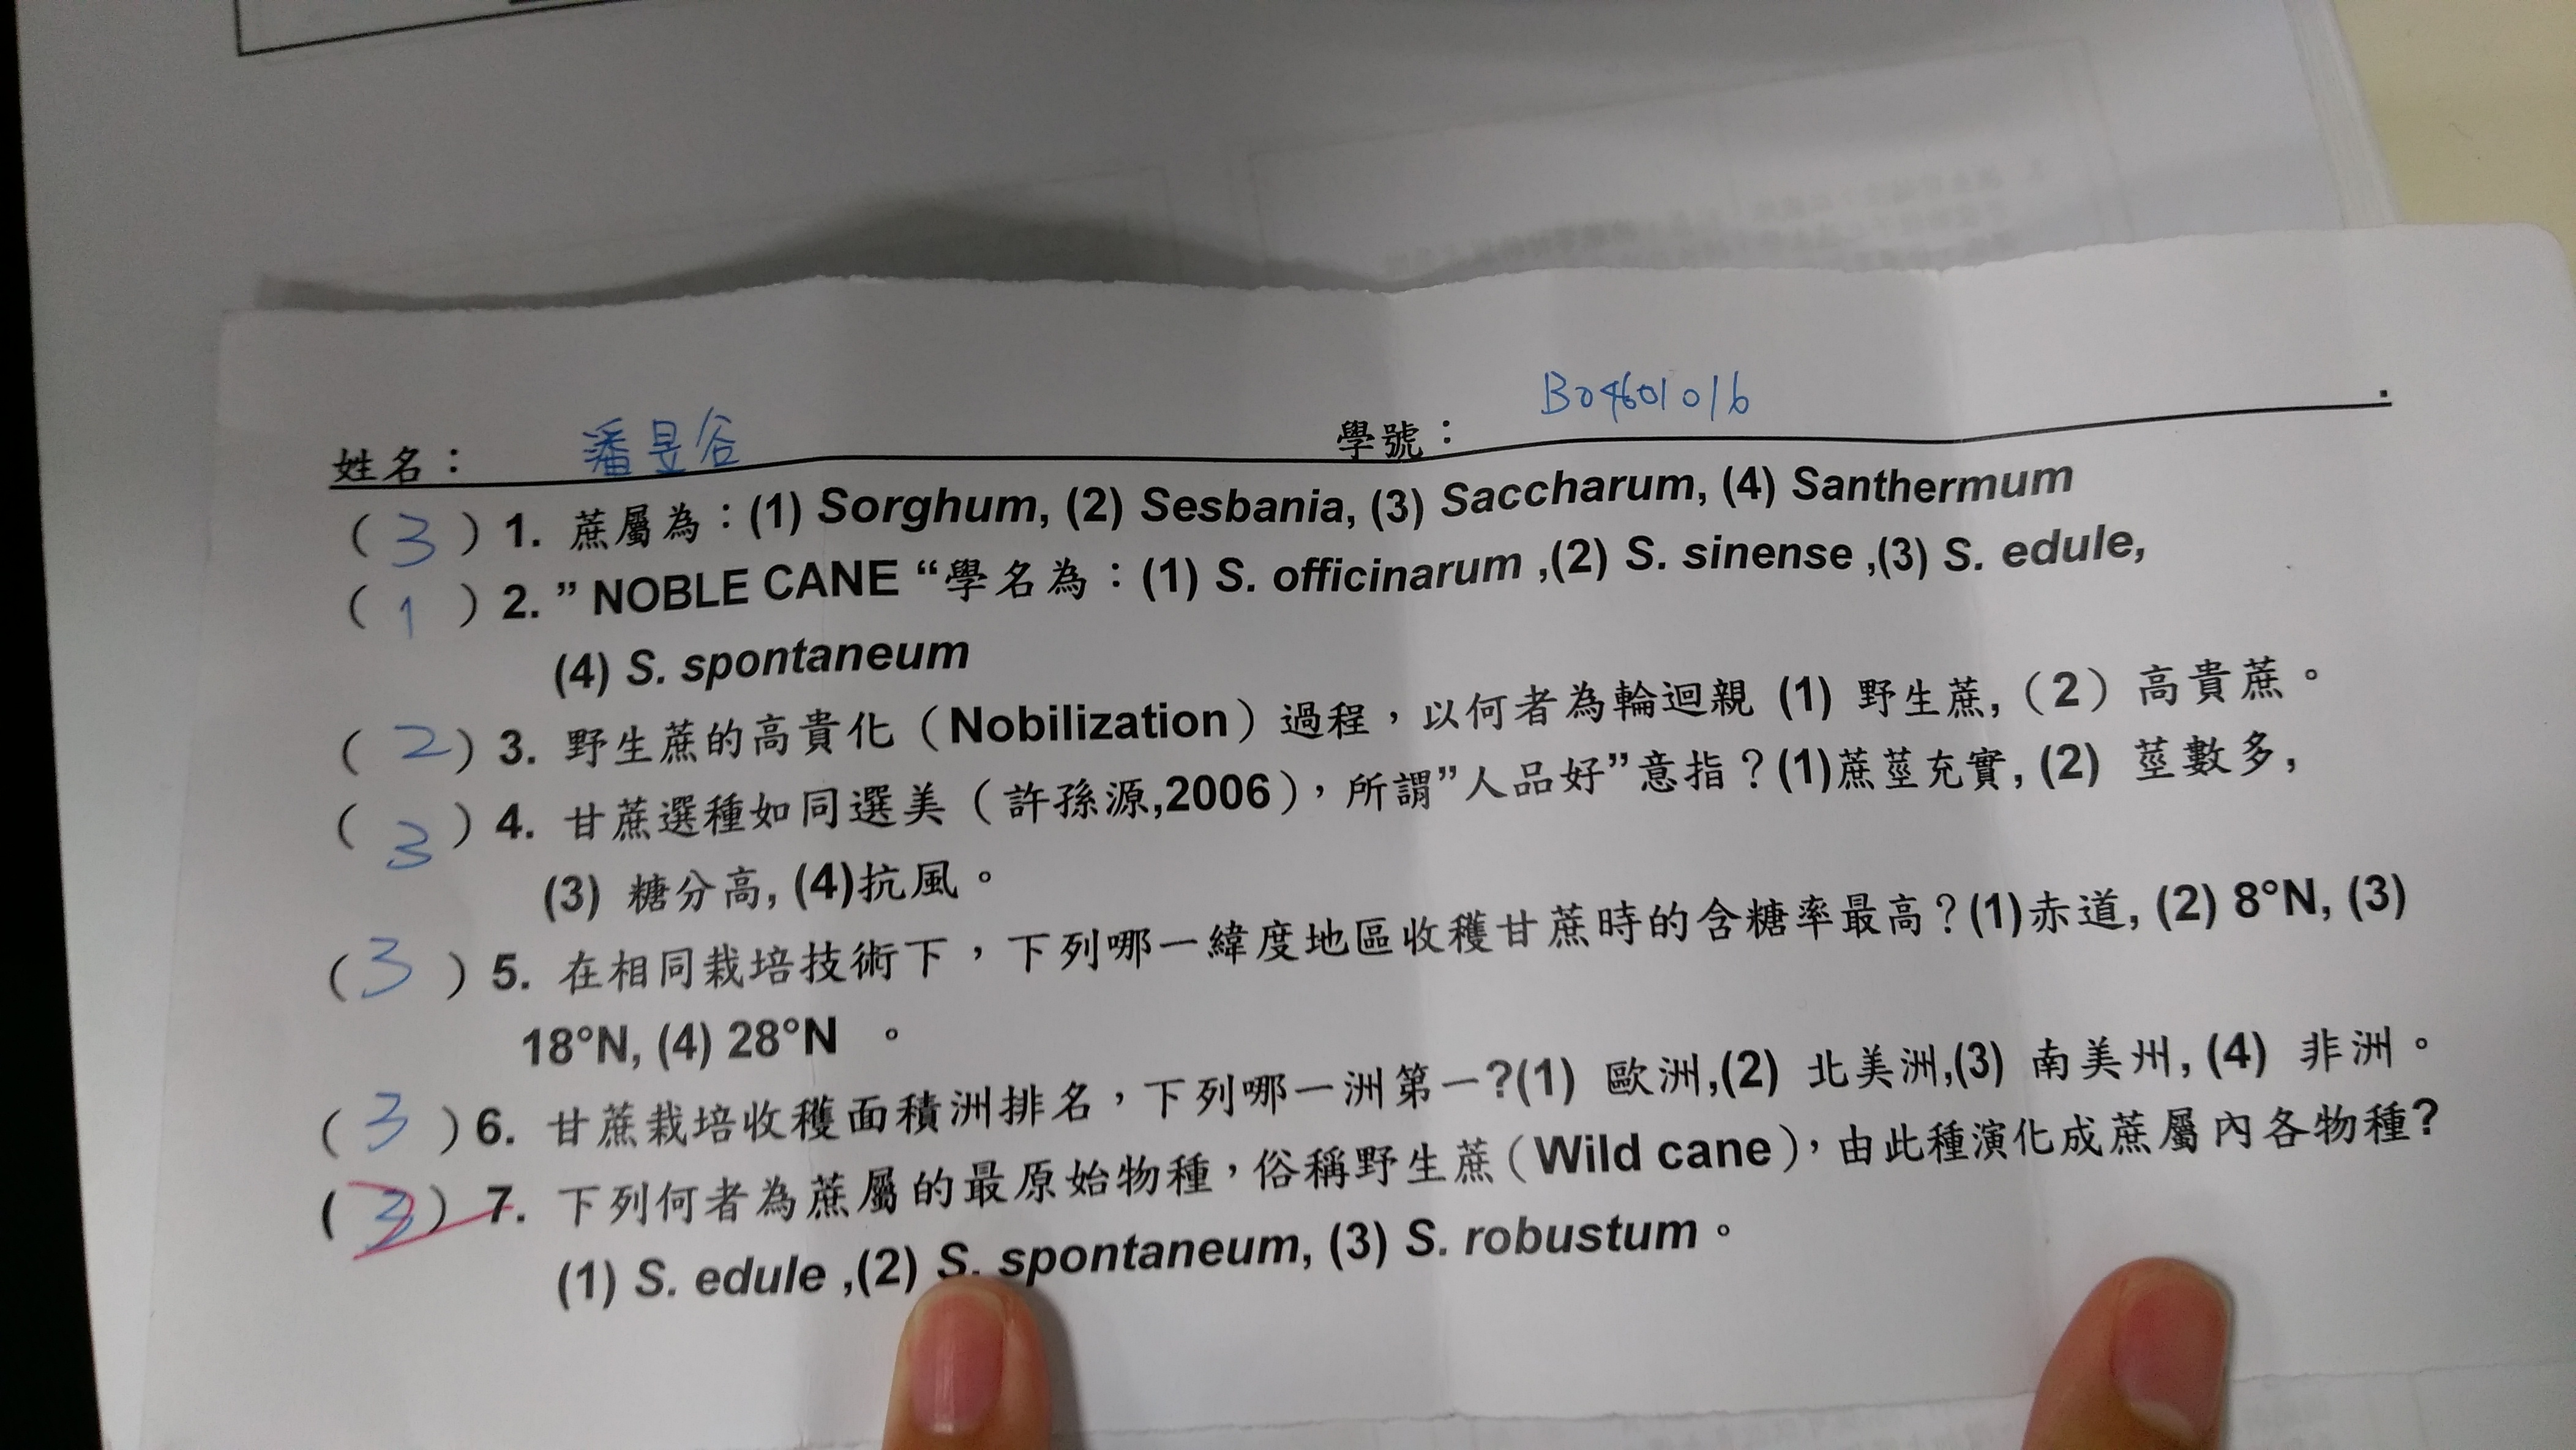 姓名： 潘昱谷 學號： B04601016 .
( 3 ) 1. 蔗屬為：(1) Sorghum, (2) Sesbania, (3) Saccharum, (4) Santhermum
( 1 ) 2. ” NOBLE CANE “學名為：(1) S. officinarum ,(2) S. sinense ,(3) S. edule,
(4) S. spontaneum
( 2 ) 3. 野生蔗的高貴化（Nobilization）過程，以何者為輪迴親 (1) 野生蔗,（2）高貴蔗。
( 3 ) 4. 甘蔗選種如同選美（許孫源,2006），所謂”人品好”意指？(1)蔗莖充實, (2) 莖數多,
(3) 糖分高, (4)抗風。
( 3 ) 5. 在相同栽培技術下，下列哪一緯度地區收穫甘蔗時的含糖率最高？(1)赤道, (2) 8°N, (3)
18°N, (4) 28°N 。
( 3 ) 6. 甘蔗栽培收穫面積洲排名，下列哪一洲第一?(1) 歐洲,(2) 北美洲,(3) 南美州, (4) 非洲。
( 3 ) 7. 下列何者為蔗屬的最原始物種，俗稱野生蔗（Wild cane），由此種演化成蔗屬內各物種?
(1) S. edule ,(2) S. spontaneum, (3) S. robustum。